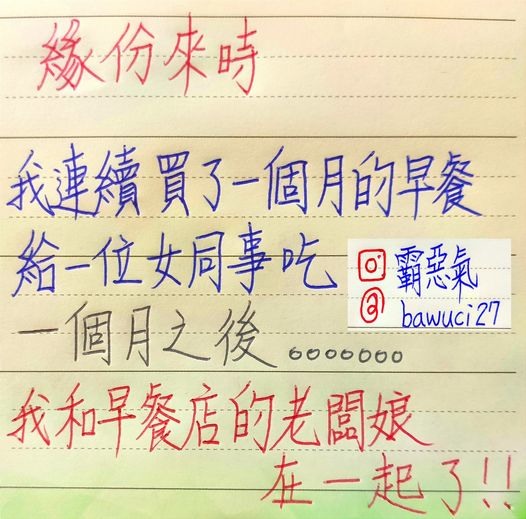 緣份來時
我連續買了一個月的早餐
給一位女同事吃
霸惡氣
bawuci27
一個月之後。。。。。。。
我和早餐店的老闆娘
在一起了!!